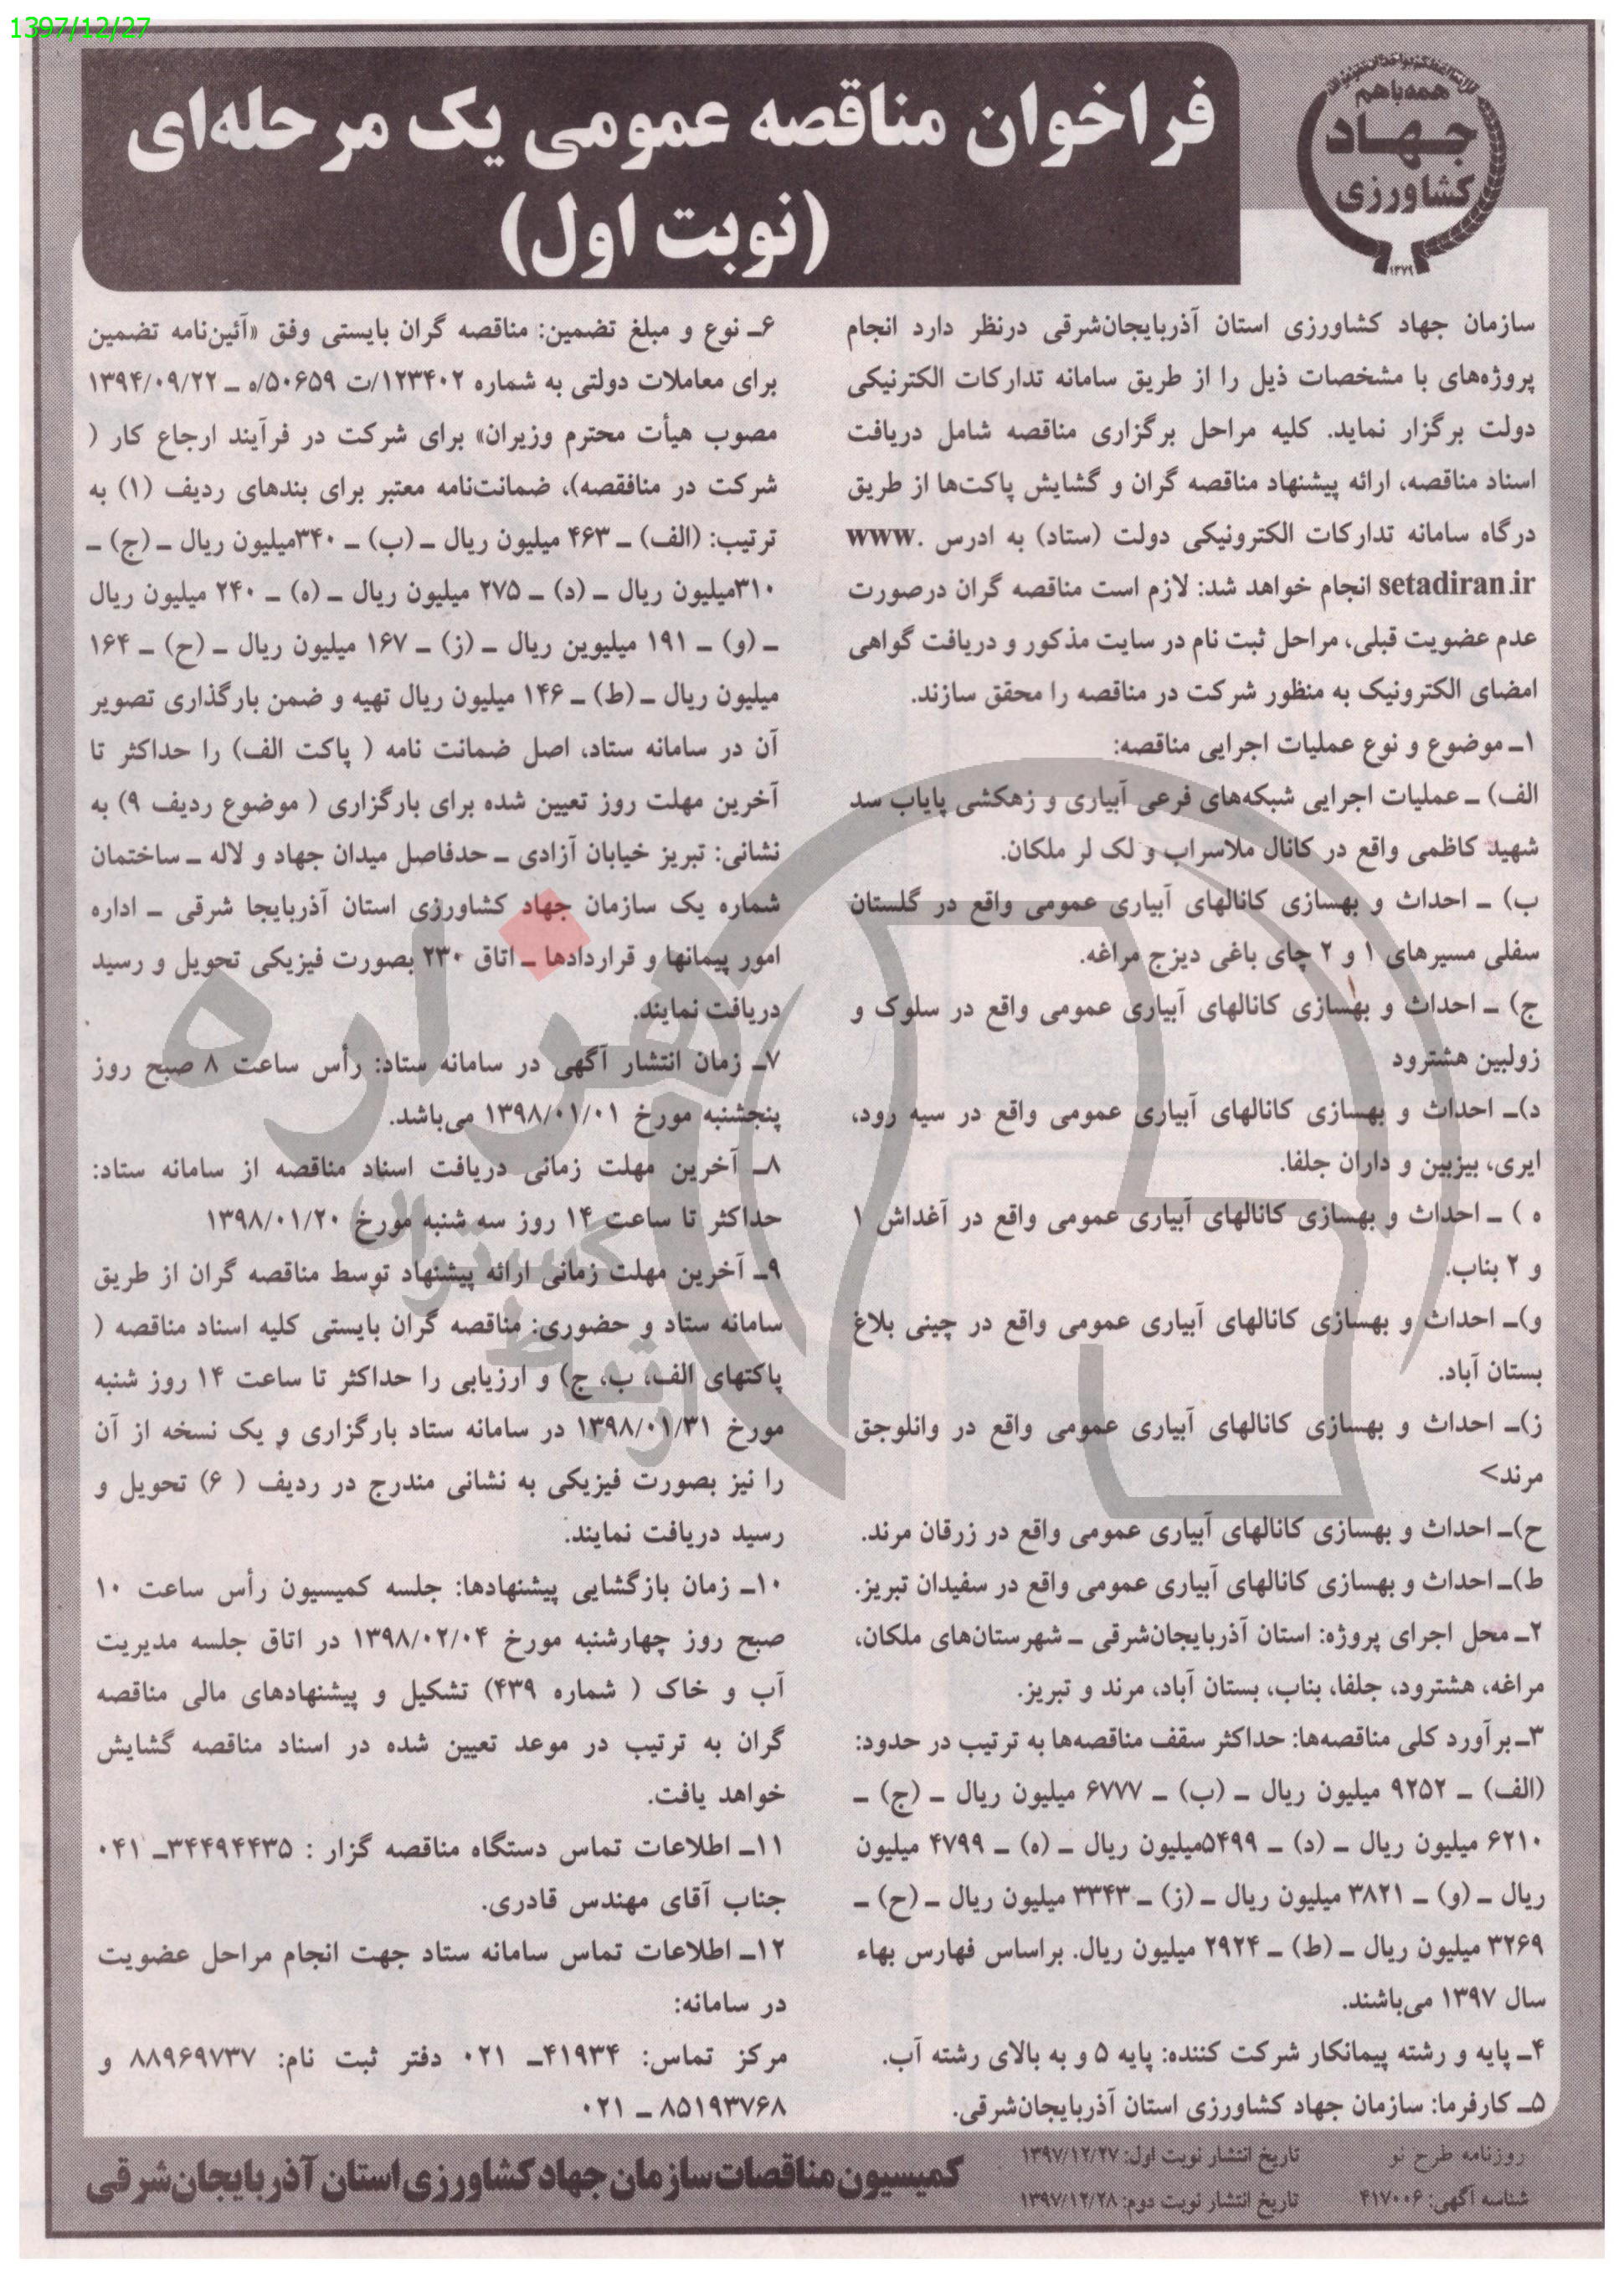 1397/12/27
همه با هم
جهاد
کشاورزی
۱۳۷۹
فراخوان مناقصه عمومی یک مرحله‌ای
(نوبت اول)
سازمان جهاد کشاورزی استان آذربایجان‌شرقی درنظر دارد انجام
پروژه‌های با مشخصات ذیل را از طریق سامانه تدارکات الکترنیکی
دولت برگزار نماید. کلیه مراحل برگزاری مناقصه شامل دریافت
اسناد مناقصه، ارائه پیشنهاد مناقصه گران و گشایش پاکت‌ها از طریق
درگاه سامانه تدارکات الکترونیکی دولت (ستاد) به ادرس www.
setadiran.ir انجام خواهد شد: لازم است مناقصه گران درصورت
عدم عضویت قبلی، مراحل ثبت نام در سایت مذکور و دریافت گواهی
امضای الکترونیک به منظور شرکت در مناقصه را محقق سازند.
۱ـ موضوع و نوع عملیات اجرایی مناقصه:
الف) ـ عملیات اجرایی شبکه‌های فرعی آبیاری و زهکشی پایاب سد
شهید کاظمی واقع در کانال ملاسراب و لک لر ملکان.
ب) ـ احداث و بهسازی کانالهای آبیاری عمومی واقع در گلستان
سفلی مسیرهای ۱ و ۲ چای باغی دیزج مراغه.
ج) ـ احداث و بهسازی کانالهای آبیاری عمومی واقع در سلوک و
زولبین هشترود
د)ـ احداث و بهسازی کانالهای آبیاری عمومی واقع در سیه رود،
ایری، بیزبین و داران جلفا.
ه ) ـ احداث و بهسازی کانالهای آبیاری عمومی واقع در آغداش ۱
و ۲ بناب.
و)ـ احداث و بهسازی کانالهای آبیاری عمومی واقع در چینی بلاغ
بستان آباد.
ز)ـ احداث و بهسازی کانالهای آبیاری عمومی واقع در وانلوجق
مرند>
ح)ـ احداث و بهسازی کانالهای آبیاری عمومی واقع در زرقان مرند.
ط)ـ احداث و بهسازی کانالهای آبیاری عمومی واقع در سفیدان تبریز.
۲ـ محل اجرای پروژه: استان آذربایجان‌شرقی ـ شهرستان‌های ملکان،
مراغه، هشترود، جلفا، بناب، بستان آباد، مرند و تبریز.
۳ـ برآورد کلی مناقصه‌ها: حداکثر سقف مناقصه‌ها به ترتیب در حدود:
(الف) ـ ۹۲۵۲ میلیون ریال ـ (ب) ـ ۶۷۷۷ میلیون ریال ـ (ج) ـ
۶۲۱۰ میلیون ریال ـ (د) ـ ۵۴۹۹میلیون ریال ـ (ه) ـ ۴۷۹۹ میلیون
ریال ـ (و) ـ ۳۸۲۱ میلیون ریال ـ (ز) ـ ۳۳۴۳ میلیون ریال ـ (ح) ـ
۳۲۶۹ میلیون ریال ـ (ط) ـ ۲۹۲۴ میلیون ریال. براساس فهارس بهاء
سال ۱۳۹۷ می‌باشند.
۴ـ پایه و رشته پیمانکار شرکت کننده: پایه ۵ و به بالای رشته آب.
۵ـ کارفرما: سازمان جهاد کشاورزی استان آذربایجان‌شرقی.
۶ـ نوع و مبلغ تضمین: مناقصه گران بایستی وفق «آئین‌نامه تضمین
برای معاملات دولتی به شماره ۱۲۳۴۰۲/ت ۵۰۶۵۹/ه ـ ۱۳۹۴/۰۹/۲۲
مصوب هیأت محترم وزیران» برای شرکت در فرآیند ارجاع کار (
شرکت در منافقصه)، ضمانت‌نامه معتبر برای بندهای ردیف (۱) به
ترتیب: (الف) ـ ۴۶۳ میلیون ریال ـ (ب) ـ ۳۴۰میلیون ریال ـ (ج) ـ
۳۱۰میلیون ریال ـ (د) ـ ۲۷۵ میلیون ریال ـ (ه) ـ ۲۴۰ میلیون ریال
ـ (و) ـ ۱۹۱ میلیوین ریال ـ (ز) ـ ۱۶۷ میلیون ریال ـ (ح) ـ ۱۶۴
میلیون ریال ـ (ط) ـ ۱۴۶ میلیون ریال تهیه و ضمن بارگذاری تصویر
آن در سامانه ستاد، اصل ضمانت نامه ( پاکت الف) را حداکثر تا
آخرین مهلت روز تعیین شده برای بارگزاری ( موضوع ردیف ۹) به
نشانی: تبریز خیابان آزادی ـ حدفاصل میدان جهاد و لاله ـ ساختمان
شماره یک سازمان جهاد کشاورزی استان آذربایجا شرقی ـ اداره
امور پیمانها و قراردادها ـ اتاق ۲۳۰ بصورت فیزیکی تحویل و رسید
دریافت نمایند.
۷ـ زمان انتشار آگهی در سامانه ستاد: رأس ساعت ۸ صبح روز
پنجشنبه مورخ ۱۳۹۸/۰۱/۰۱ می‌باشد.
۸ـ آخرین مهلت زمانی دریافت اسناد مناقصه از سامانه ستاد:
حداکثر تا ساعت ۱۴ روز سه شنبه مورخ ۱۳۹۸/۰۱/۲۰
۹ـ آخرین مهلت زمانی ارائه پیشنهاد توسط مناقصه گران از طریق
سامانه ستاد و حضوری: مناقصه گران بایستی کلیه اسناد مناقصه (
پاکتهای الف، ب، ج) و ارزیابی را حداکثر تا ساعت ۱۴ روز شنبه
مورخ ۱۳۹۸/۰۱/۳۱ در سامانه ستاد بارگزاری و یک نسخه از آن
را نیز بصورت فیزیکی به نشانی مندرج در ردیف ( ۶) تحویل و
رسید دریافت نمایند.
۱۰ـ زمان بازگشایی پیشنهادها: جلسه کمیسیون رأس ساعت ۱۰
صبح روز چهارشنبه مورخ ۱۳۹۸/۰۲/۰۴ در اتاق جلسه مدیریت
آب و خاک ( شماره ۴۳۹) تشکیل و پیشنهادهای مالی مناقصه
گران به ترتیب در موعد تعیین شده در اسناد مناقصه گشایش
خواهد یافت.
۱۱ـ اطلاعات تماس دستگاه مناقصه گزار : ۳۴۴۹۴۴۳۵ـ ۰۴۱
جناب آقای مهندس قادری.
۱۲ـ اطلاعات تماس سامانه ستاد جهت انجام مراحل عضویت
در سامانه:
مرکز تماس: ۴۱۹۳۴ـ ۰۲۱ دفتر ثبت نام: ۸۸۹۶۹۷۳۷ و
۸۵۱۹۳۷۶۸ ـ ۰۲۱
روزنامه طرح نو
شناسه آگهی: ۴۱۷۰۰۶
تاریخ انتشار نوبت اول: ۱۳۹۷/۱۲/۲۷
تاریخ انتشار نوبت دوم: ۱۳۹۷/۱۲/۲۸
کمیسیون مناقصات سازمان جهاد کشاورزی استان آذربایجان‌شرقی
هزاره